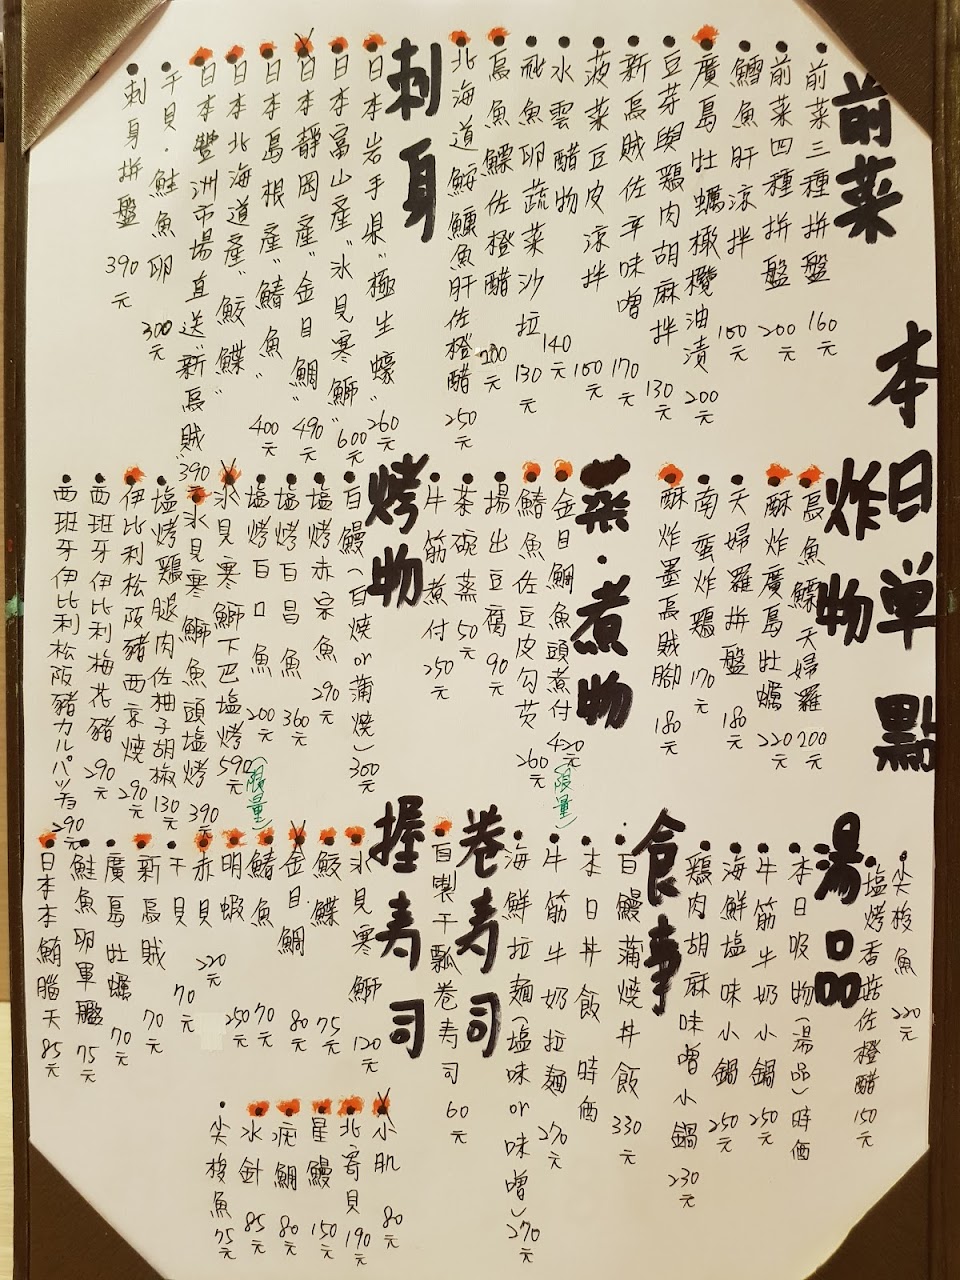 本日単點
前菜
前菜三種拼盤 160元
前菜四種拼盤 200元
鱈魚肝涼拌 160元
廣島牡蠣橄欖油漬 200元
豆芽與鶏肉胡麻拌 130元
新烏賊佐辛味噌 170元
菠菜豆皮涼拌 100元
水雲醋物 140元
秕魚卵蔬菜沙拉 130元
烏魚鰾佐橙醋 200元
北海道鮟鱇魚肝佐橙醋 250元
刺身
日本岩手県"極生蠔" 260元
日本富山產"氷見寒鰤" 600元
日本靜岡產"金目鯛" 490元
日本島根產"鰆魚" 400元
日本北海道產"鮫鰈"
日本豐洲市場直送"新烏賊" 390元
干貝·鮭魚卵 300元
刺身拼盤 390元
炸物
烏魚鰾天婦羅 200元
酥炸廣島牡蠣 220元
天婦羅拼盤 180元
南蛮炸鶏 170元
酥炸墨烏賊腳 180元
蒸·煮物
金目鯛魚頭煮付 420元(限量)
鰆魚佐豆皮勾芡 260元
揚出豆腐 90元
茶碗蒸 50元
牛筋煮付 250元
烤物
白鰻(白燒or蒲燒) 300元
塩烤赤宗魚 290元
塩烤白昌魚 360元
塩烤白口魚 200元
氷見寒鰤下巴塩烤 590元(限量)
氷見寒鰤魚頭塩烤 390元
塩烤鶏腿肉佐柚子胡椒 130元
伊比利松阪豬西京燒 290元
西班牙伊比利梅花豬 290元
西班牙伊比利松阪豬カルパッチョ 290元
尖梭魚 220元
塩烤香菇佐橙醋 150元
湯品
本日吸物(湯品)時価
牛筋牛奶小鍋 250元
海鮮塩味小鍋 250元
鶏肉胡麻味噌小鍋 230元
食事
白鰻蒲燒丼飯 330元
本日丼飯 時価
牛筋牛奶拉麵 270元
海鮮拉麵(塩味or味噌) 270元
卷寿司
自製干瓢卷寿司 60元
握寿司
氷見寒鰤 120元
鮫鰈 75元
金目鯛 80元
鰆魚 70元
明蝦 250元
赤貝 220元
干貝 70元
新烏賊 70元
廣島牡蠣 70元
鮭魚卵軍艦 75元
日本本鮪腦天 85元
小肌 80元
北寄貝 190元
星鰻 150元
疣鯛 80元
水針 85元
尖梭魚 75元